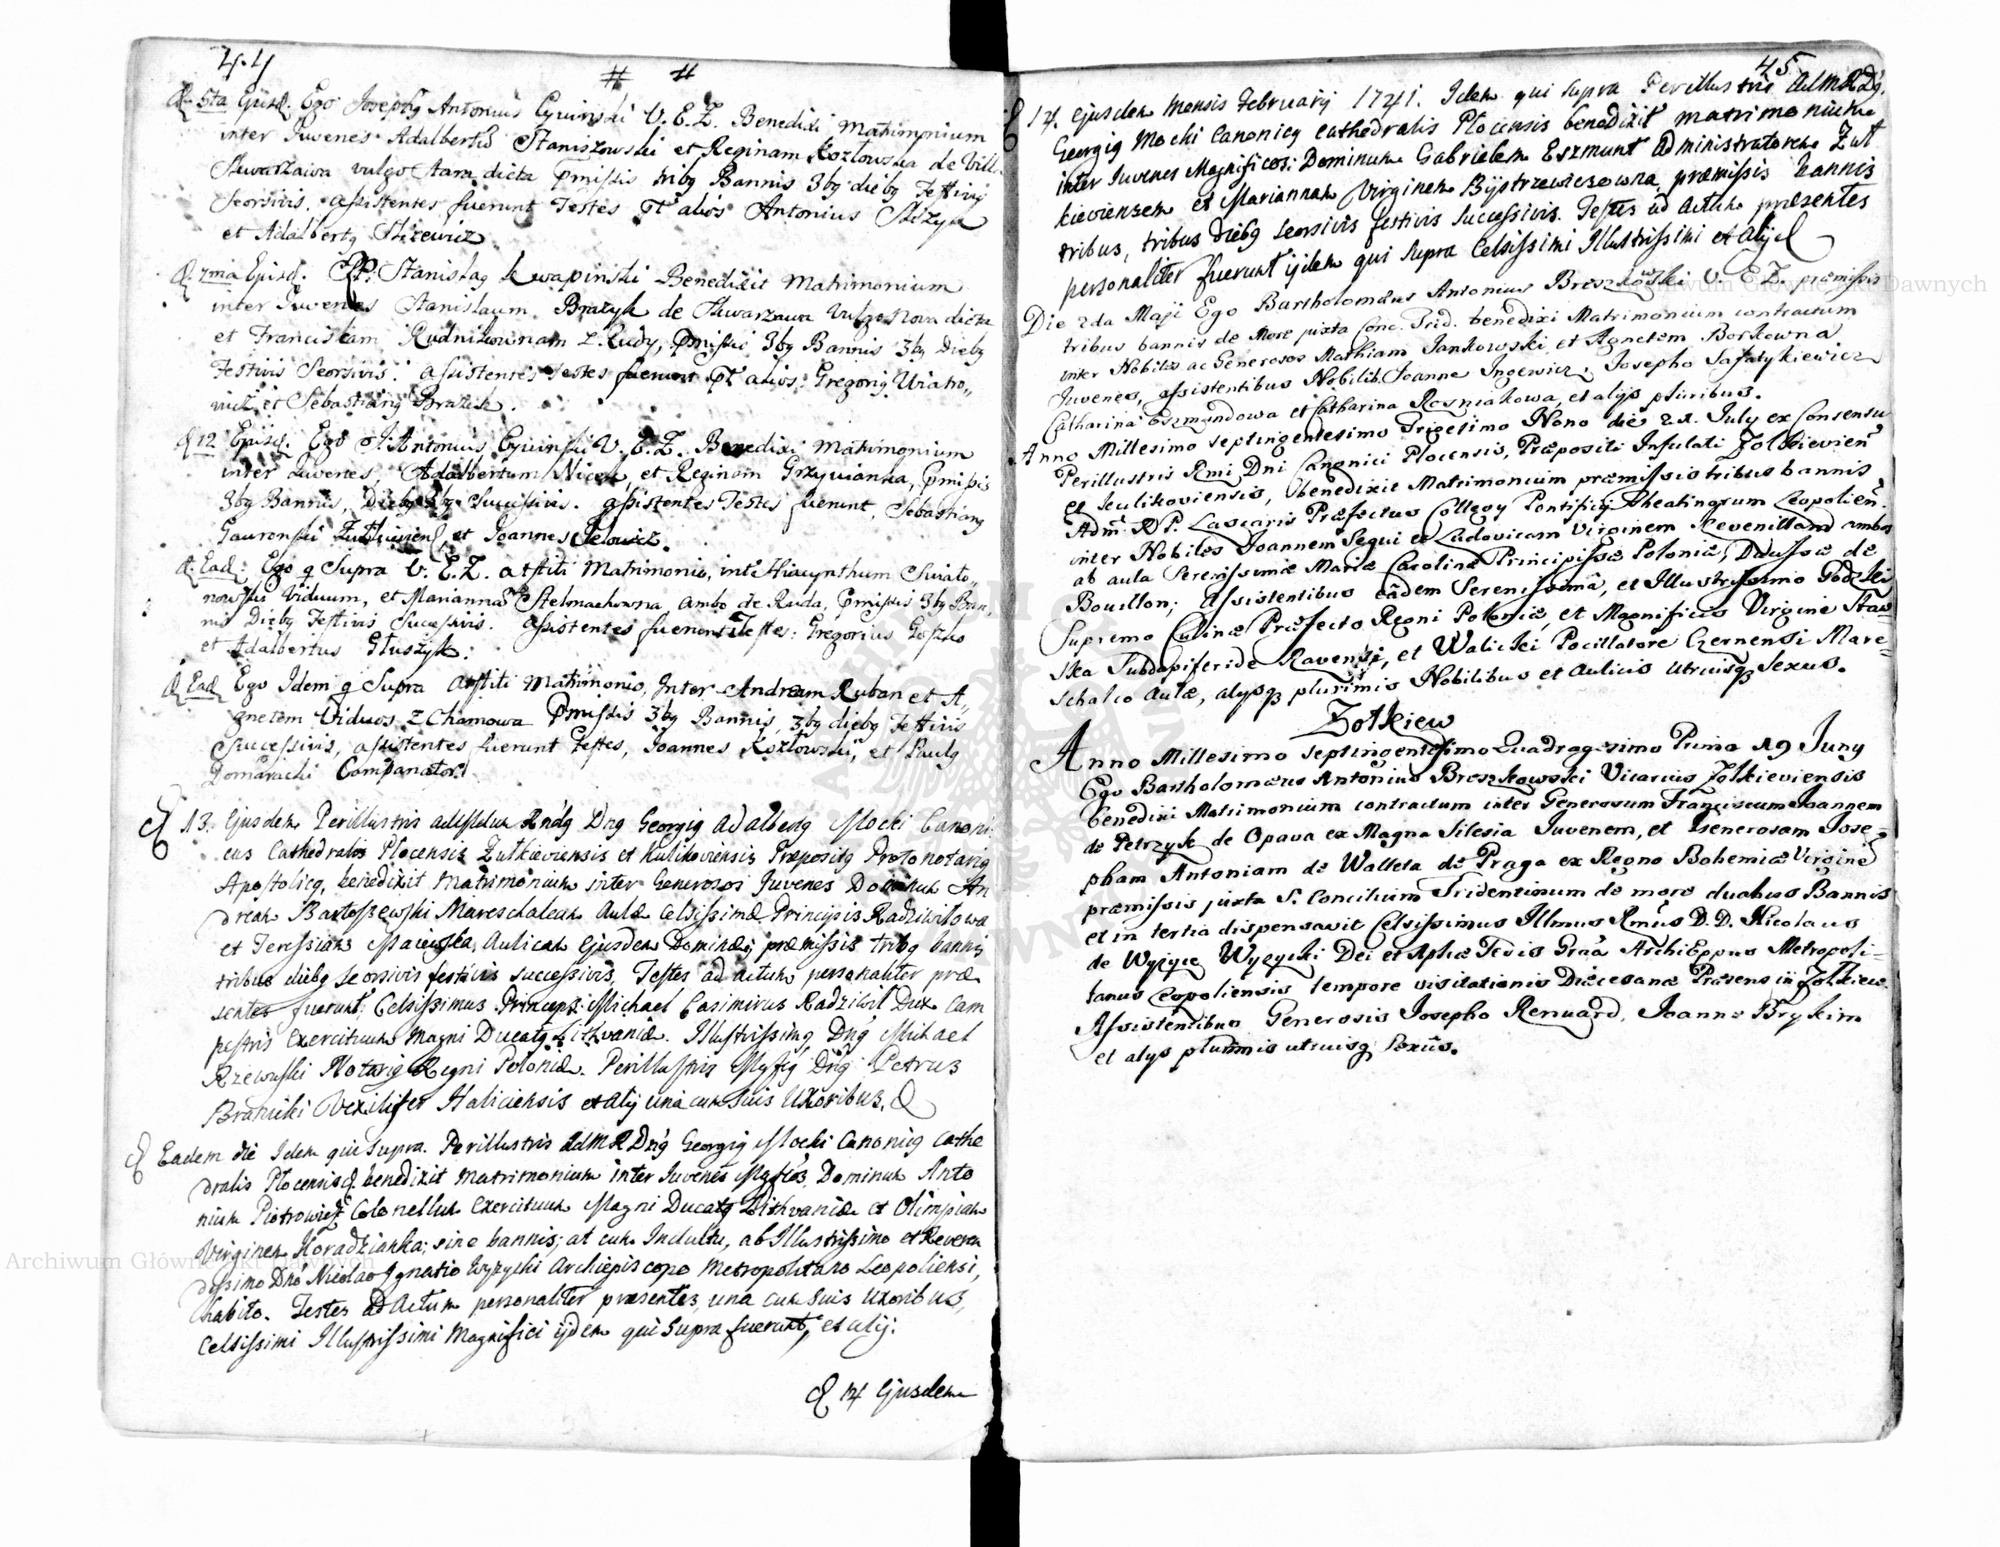 44
# #
D. 5ta Ejusd. Ego Josephq Antonius Cyvinski V. E. Z. Benedixi Matrimonium
inter Juvenes Adalbertū Staniszowski et Reginam Kozłowska de Villa
Skwarzawa vulgo Stara dicta pmissis tribq Bannis 3bq diebq Festivis
Seorsivis. assistentes fuerunt Testes pt alios Antonius Skrzyk
et Adalbertq Ilkiewicz
D. 7ma Ejusd. RP. Stanislaq Kwapinski Benedixit Matrimonium
inter Juvenes Stanislaum Brazyk de Skwarzawa vulgo Nova dicta
et Franciscam Rudnikownam z Rudy, pmissis 3bq Bannis 3bq Diebq
Festivis Seorsivis. assistentes Testes fuerunt pt alios: Gregoriq Wiatro,,
wicz et Sebastianq Brazik.
D 12 Ejusd. Ego J. Antonius Cyvinski V. E. Z. Benedixi Matrimonium
inter Juvenes, Adalbertum Nicek et Reginam Grzywianka, pmissis
3bq Bannis, Diebq 3bq Successivis. assistentes Testes fuerunt, Sebastianq
Gauronski et Joannes Selowicz.
D. Ead: Ego q Supra V. E. Z. astiti Matrimonio, intē Hiacynthum Swiato,,
nowski Viduum, et Mariannā Stelmachowna, ambo de Ruda, pmissis 3bq Ban,
nis Diebq Festivis Sucessivis. assistentes fuerunt Testes: Gregorius Goszko
et Adalbertus Głuszyk:
D. Ead Ego Idem q Supra astiti Matrimonio, Inter Andream Ruban et A,,
gnetem Viduos z Chamowa pmissis 3bq Bannis, 3bq diebq Festivis
Successivis, assistentes fuerunt Testes, Joannes Kozłowski, et Paulq
Domaracki Companator.
D 13. Ejusdem Perillustris admdum Rndq Dnq Georgiq Adalbertq Mocki Canoni,
cus Cathedralis Plocensis Zulkieviensis et Kulikoviensis Præpositq Protonotariq
Apostolicq, benedixit Matrimonium inter Generosos Juvenes Dominum An
dream Bartoszewski Mareschalcum Aulæ Celsissimæ Principis Radziwiłowa
et Teressiam Maiewska, Aulicam Ejusdem Dominæ; præmissis tribq bannis
tribus diebq seorsivis festivis successivis, Testes ad actum personaliter præ
sentes fuerunt; Celsissimus Princeps Michael Casimirus Radziwił Dux Cam
pestris Exercituum Magni Ducatq Lithvaniæ. Illustrissimq Dnq Michael
Rzewuski Notariq Regni Poloniæ. Perillustris Mgfcq Dnq Petrus
Branicki Vexilifer Haliciensis et alij una cum suis Uxoribus.
D Eadem die Idem qui supra. Perillustris adM R Dnq Georgiq Mocki Canonicq Cathe
dralis Plocensis benedixit Matrimonium inter Juvenes Mgfcos, Dominum Anto
nium Piotrowicz Colonellum Exercituum Magni Ducatq Lithvaniæ et Olimpiam
Virginem Koradzianka; sine bannis; at cum Indultu, ab Illustrissimo et Reveren
dissimo Dno Nicolao Ignatio Wyżycki Archiepiscopo Metropolitano Leopoliensi,
habito. Testes ad Actum personaliter præsentes, una cum suis Uxoribus,
Celsissimi Illustrissimi Magnifici ijdem qui supra fuerunt, et alij.
D 14 Ejusdem
45
D 14. Ejusdem Mensis Februarij 1741. Idem qui supra Perillustris AdM R Dq.
Georgiq Mocki Canonicq Cathedralis Plocensis benedixit matrimonium
inter Juvenes Magnificos: Dominum Gabrielem Eszmunt administratorem Zul
kieviensem et Mariannam Virginem Bystrzewiczowna, præmissis bannis
tribus, tribus diebq seorsivis festivis successivis. Testes ad Actum præsentes
personaliter fuerunt ijdem qui supra Celsissimi Illustrissimi et alij.
Die 2da Maji Ego Bartholomæus Antonius Breszkowski V. E. Z. præmissis
tribus bannis de More juxta Conc. Trid. benedixi Matrimonium contractum
inter Nobiles ac Generosos Mathiam Jankowski et Agnetem Borkowna
Juvenes, assistentibus Nobilib. Joanne Ingewicz, Josepho Safatykiewicz
Catharina Eszmundowa et Catharina Rosniakowa, et alijs pluribus.
Anno Millesimo Septingentesimo Trigesimo Nono die 21. July ex Consensu
Perillustris Rmi Dni Canonici Plocensis, Præpositi Infulati Zolkievien
et Kulikoviensis, benedixit Matrimonium præmissis tribus bannis
Adm. R. P. Lascaris Præfectus Collegij Pontificij Theatinorum Leopolien.
inter Nobiles Joannem Sequi et Ludovicam Virginem Revenilland ambos
ab aula Serenissimæ Mariæ Carolinæ Principissæ Poloniæ, Ducissæ de
Bouillon; Assistentibus eâdem Serenissimâ, et Illustrissimo Godzki
Supremo Culinæ Præfecto Regni Poloniæ, et Magnificis Virgine Staw
ska Subdapiferide Ravensi, et Walicki Pocillatore Czernensi Mare-
schalco Aulæ, alijsq plurimis Nobilibus et Aulicis utriusq Sexus.
Zołkiew
Anno Millesimo Septingentesimo Quadragesimo Primo 19 Juny
Ego Bartholomæus Antonius Breszkowski Vicarius Zolkieviensis
benedixi Matrimonium contractum inter Generosum Franciscum Joannem
de Petrzyk de Opava ex Magna Silesia Juvenem, et Generosam Jose-
pham Antoniam de Walleta de Praga ex Regno Bohemiæ Virginē
præmissis juxta S. Concilium Tridentinum de more duabus Bannis
et in tertia dispensavit Celsissimus Illmus Rmus D. D. Nicolaus
de Wyżyce Wyżycki Dei et Aplicæ Sedis Gratia ArchiEppus Metropoli-
tanus Leopoliensis tempore visitationis Diæcesanæ Præsens in Zolkiew.
Assistentibus Generosis Josepho Renuard, Joanne Brykim
et alijs plurimis utriusq Sexus.
Archiwum Główne Akt Dawnych
Archiwum Główne Akt Dawnych